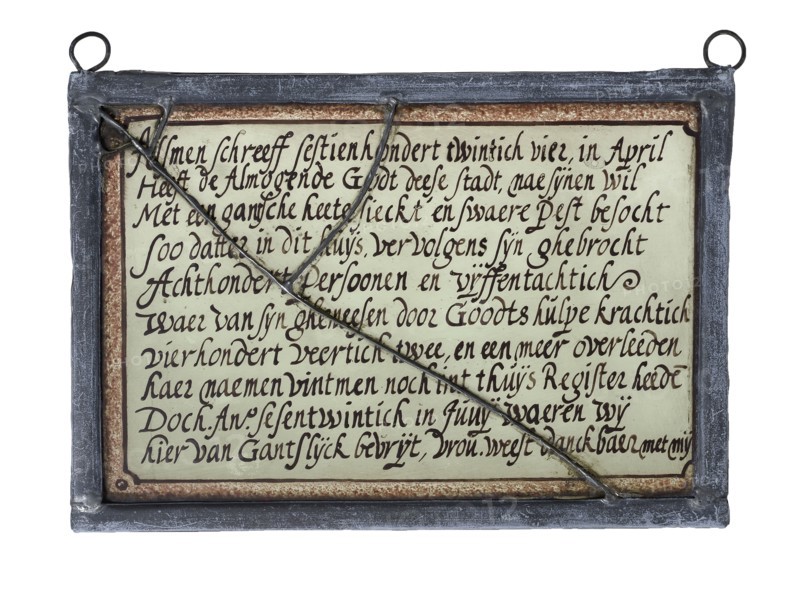 Alsmen schreeff sestienhondert twintich vier, in April
Heeft de Almogende Godt deese stadt, nae sÿnen wil
Met een gansche heete sieckt en swaere Pest besocht
Soo datter in dit huÿs, vervolgens sÿn ghebrocht
Achthondert Persoonen en vÿffentachtich
Waer van sÿn gheneesen door Goodts hulpe krachtich
vierhondert veertich twee, en een meer overleeden
haer naemen vintmen noch int thuÿs Register heede
Doch. An.º sesentwintich in Juuÿ waeren wÿ
hier van Gantslÿck bevrÿt, vrou. weest danckbaer met mÿ